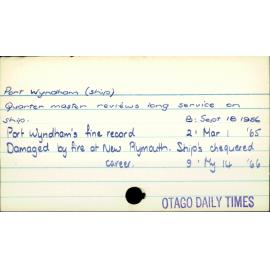 Port Wyndham (ship)
Quarter master reviews long service on
ship. 8: Sept 18 1956
Port Wyndham's fine record 2: Mar 1 '65
Damaged by fire at New Plymouth. Ship's chequered
career. 9: My 14 '66
OTAGO DAILY TIMES